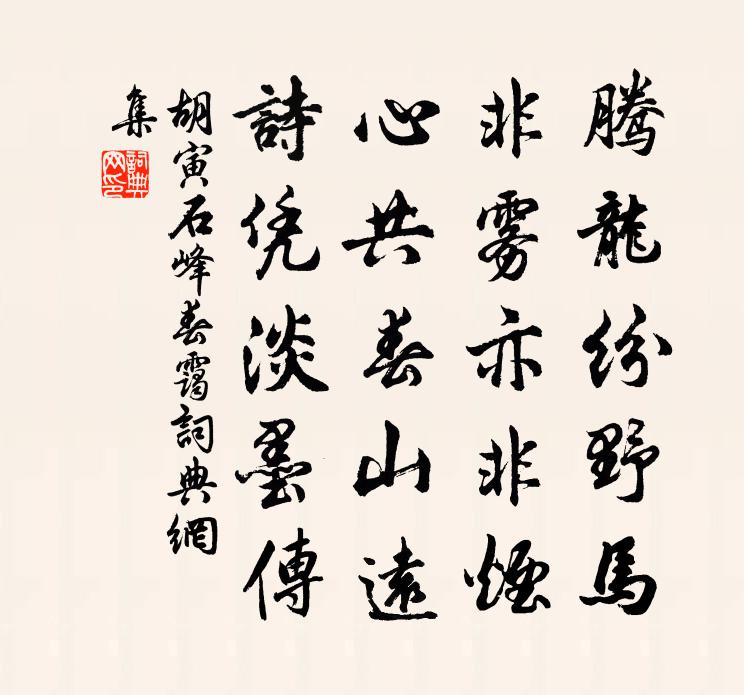 騰龍紛野馬
非雾亦非煙
心共春山遠
詩凭淡墨傳
胡寅石峰春靄詞典網
集
詞典
网印